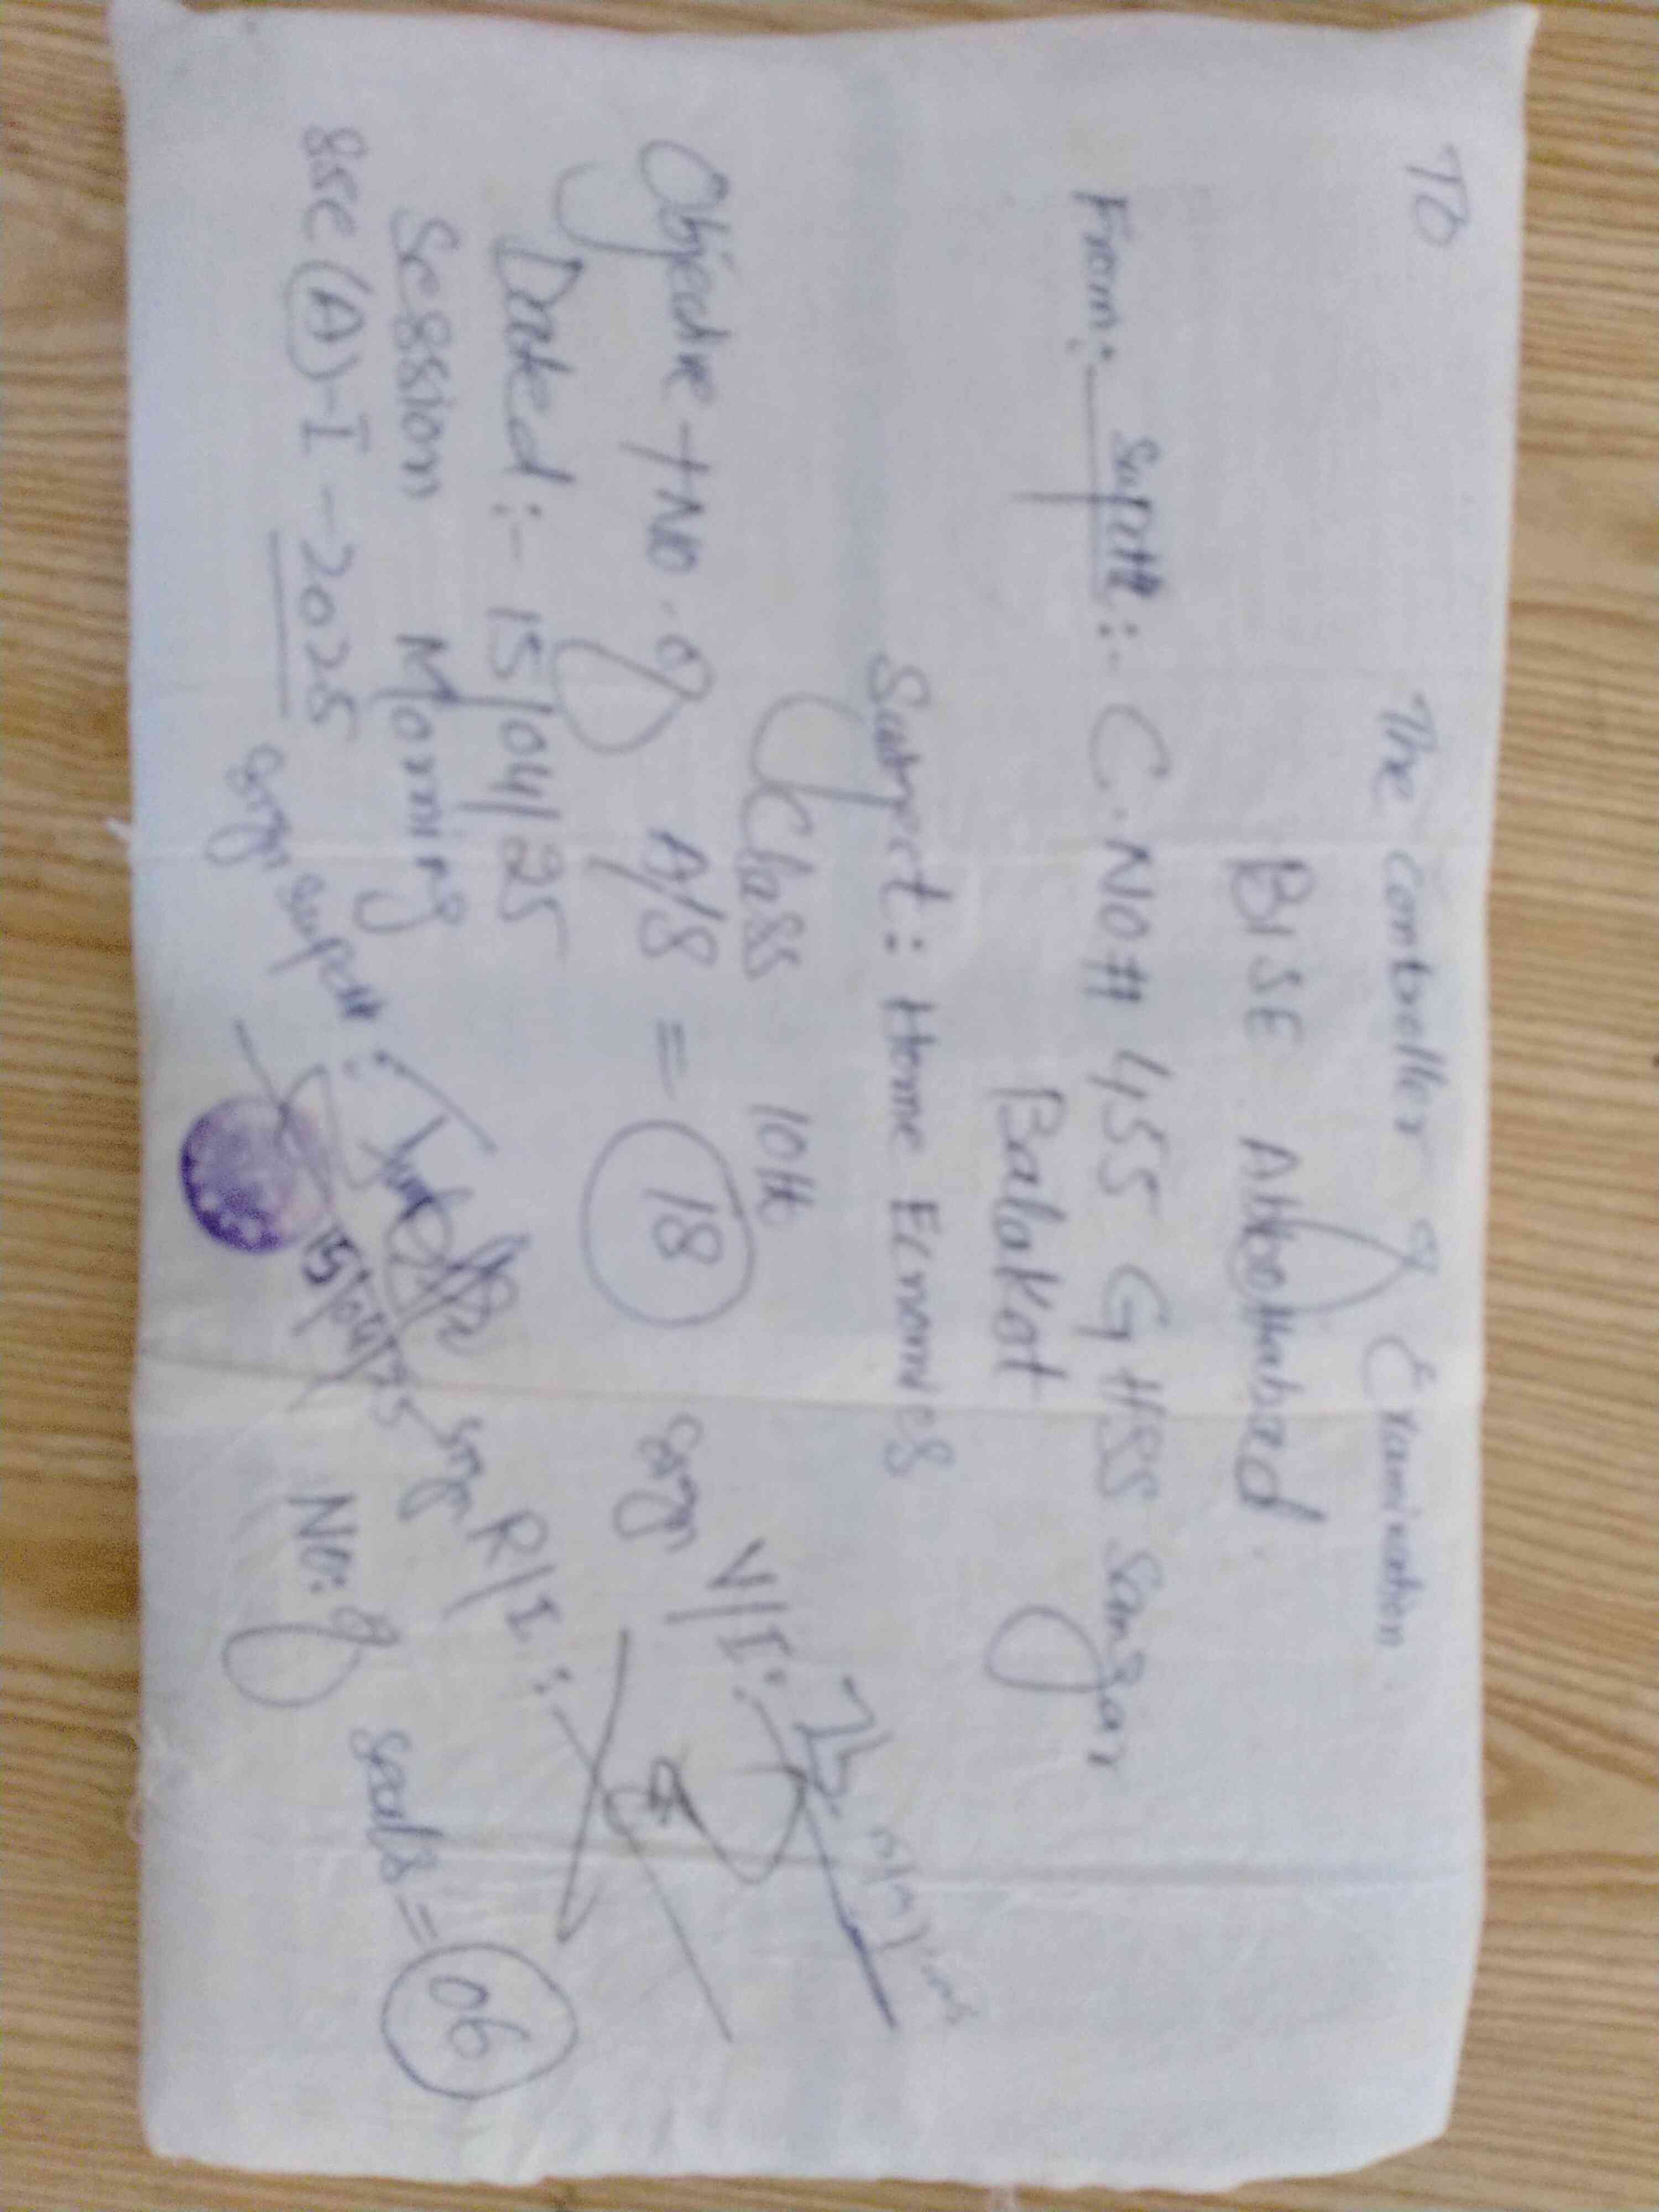 To
The Controller of Examination
BISE Abbottabad.
From:- Supdtt:- C.No# 455 GHSS Sangar
Balakot
Subject: Home Ecnomics
Class 10th
Objective + No. of A/S = 18
Dated:- 15/04/25
Session Morning
SSC (A)-I-2025
Sign V/I:
Sign supdtt:
15/04/25
Sign R/I:
No: of seals = 06